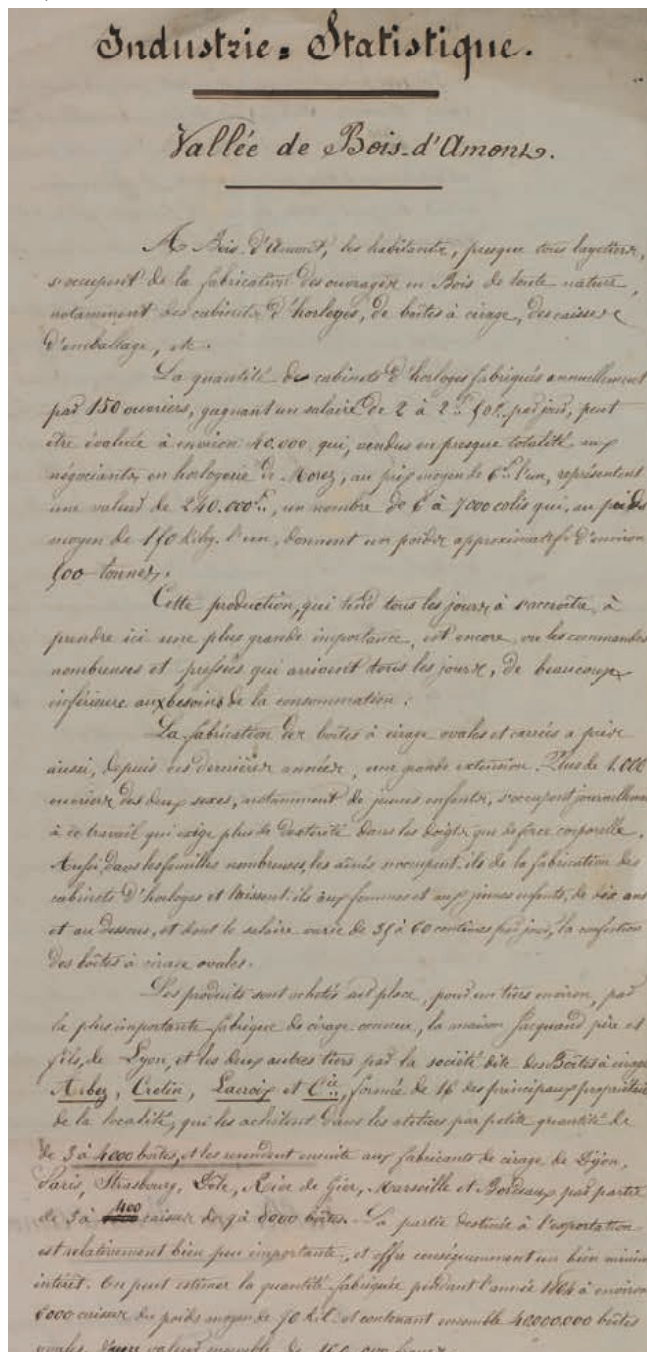 Industrie = Statistique.
Vallée de Bois-d'Amont.
A Bois-d'Amont, les habitants, presque tous layetiers,
s'occupent de la fabrication des ouvrages en Bois de toute nature,
notamment des cabinets d'horloges, de boîtes à cirage, des caisses
d'emballage, etc.
La quantité de cabinets d'horloges fabriqués annuellement
par 150 ouvriers, gagnant un salaire de 2 à 2f 50c par jour, peut
être évaluée à environ 40.000 qui, vendus en presque totalité aux
négociants en horlogerie de Morez, au prix moyen de 6f l'un, représentent
une valeur de 240.000f, un nombre de 6 à 7000 colis qui, au poids
moyen de 150 kilog. l'un, donnent un poids approximatif d'environ
500 tonnes.
Cette production, qui tend tous les jours à s'accroître, à
prendre ici une plus grande importance, est encore, vu les commandes
nombreuses et pressées qui arrivent tous les jours, de beaucoup
inférieure aux besoins de la consommation.
La fabrication des boîtes à cirage ovales et carrées a pris
aussi, depuis ces dernières années, une grande extension. Plus de 1.000
ouvriers des deux sexes, notamment de jeunes enfants, s'occupent journellement
à ce travail qui exige plus de dextérité dans les doigts que de force corporelle.
Aussi, dans les familles nombreuses, les aînés s'occupent-ils de la fabrication des
cabinets d'horloges et laissent-ils aux femmes et aux jeunes enfants, de dix ans
et au dessous, et dont le salaire varie de 35 à 60 centimes par jour, la confection
des boîtes à cirage ovales.
Les produits sont achetés sur place, pour un tiers environ, par
la plus importante fabrique de cirage connue, la maison Jacquand père et
fils, de Lyon, et les deux autres tiers par la société dite des Boîtes à cirage
Arbez, Cretin, Lacroix et Cie, formée de 16 des principaux propriétaires
de la localité, qui les achètent dans les ateliers par petite quantité de
de 3 à 4000 boîtes, et les revendent ensuite aux fabricants de cirage de Dijon,
Paris, Strasbourg, Dôle, Rive de Gier, Marseille et Bordeaux par partie
de 3 à 400 caisses de 7 à 8000 boîtes. La partie destinée à l'exportation
est relativement bien peu importante, et offre conséquemment un bien minime
intérêt. On peut estimer la quantité fabriquée pendant l'année 1864 à environ
6000 caisses du poids moyen de 70 kil. et contenant ensemble 40.000.000 boîtes
ovales, d'une valeur de francs